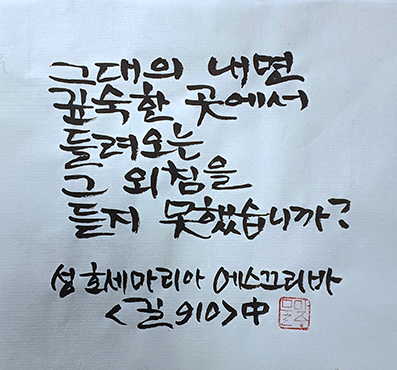 그대의 내면
깊숙한 곳에서
들려오는
그 외침을
듣지 못했습니까?
성 호세마리아 에스끄리바
<길 910>中